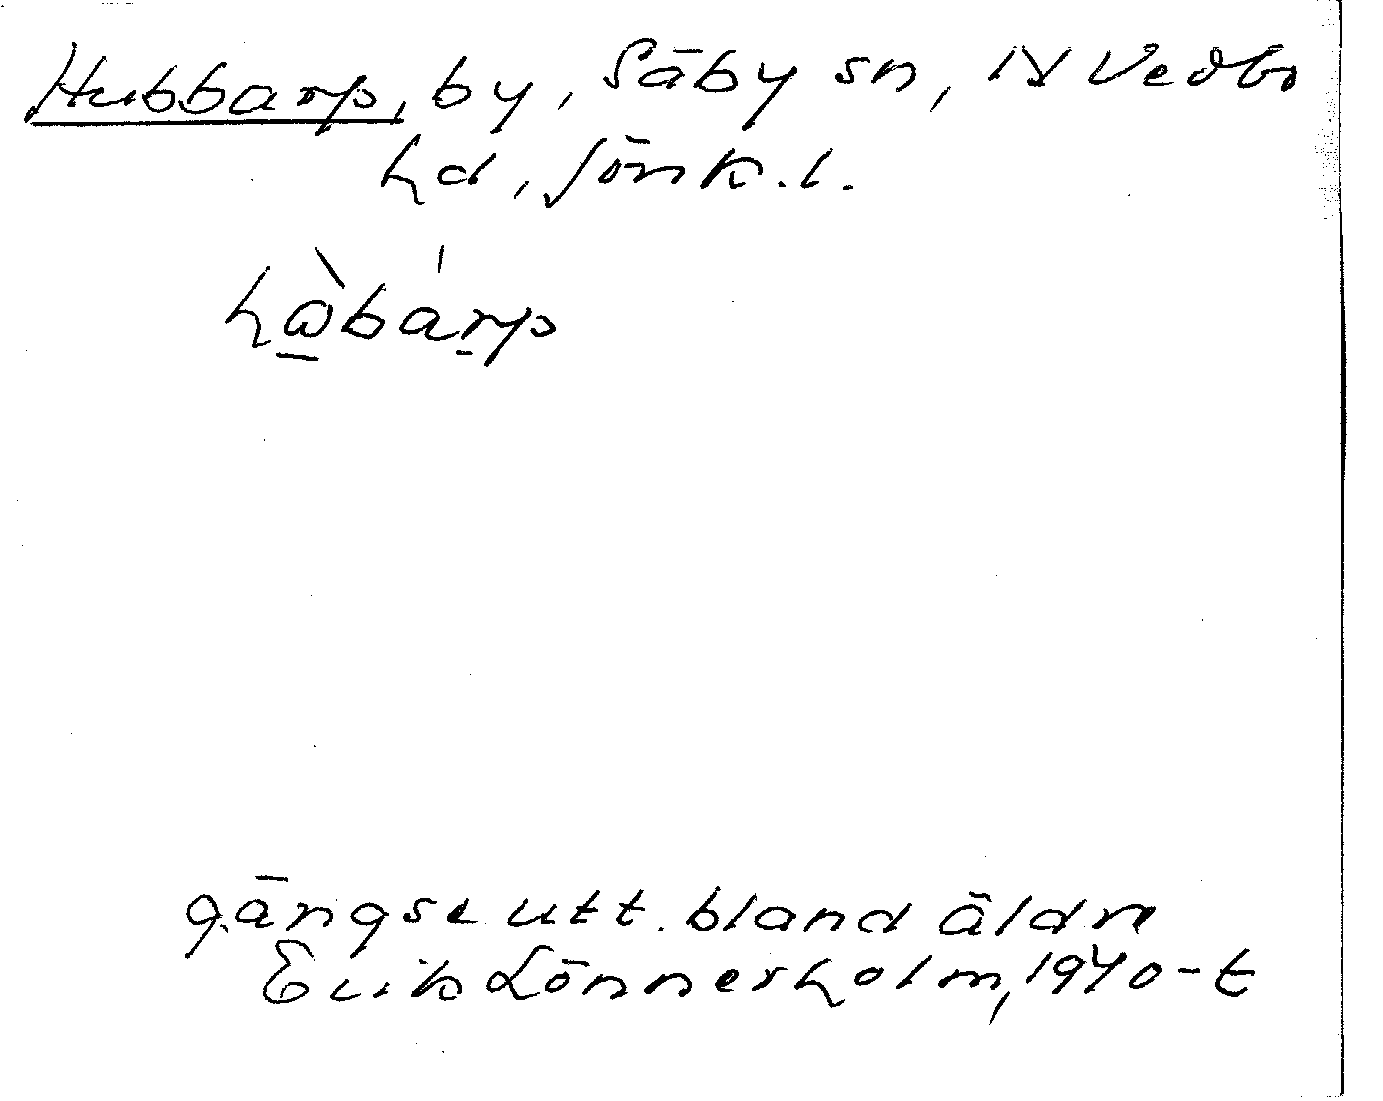 Hubbarp, by, Säby sn, N Vedbo
hd, Jönk.l.
hὼ̱bár̠p
gängse utt. bland äldre
Erik Lönnerholm, 1940-t